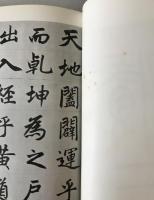 天地闔闢運乎
而乹坤為之戶
出入經乎黄道